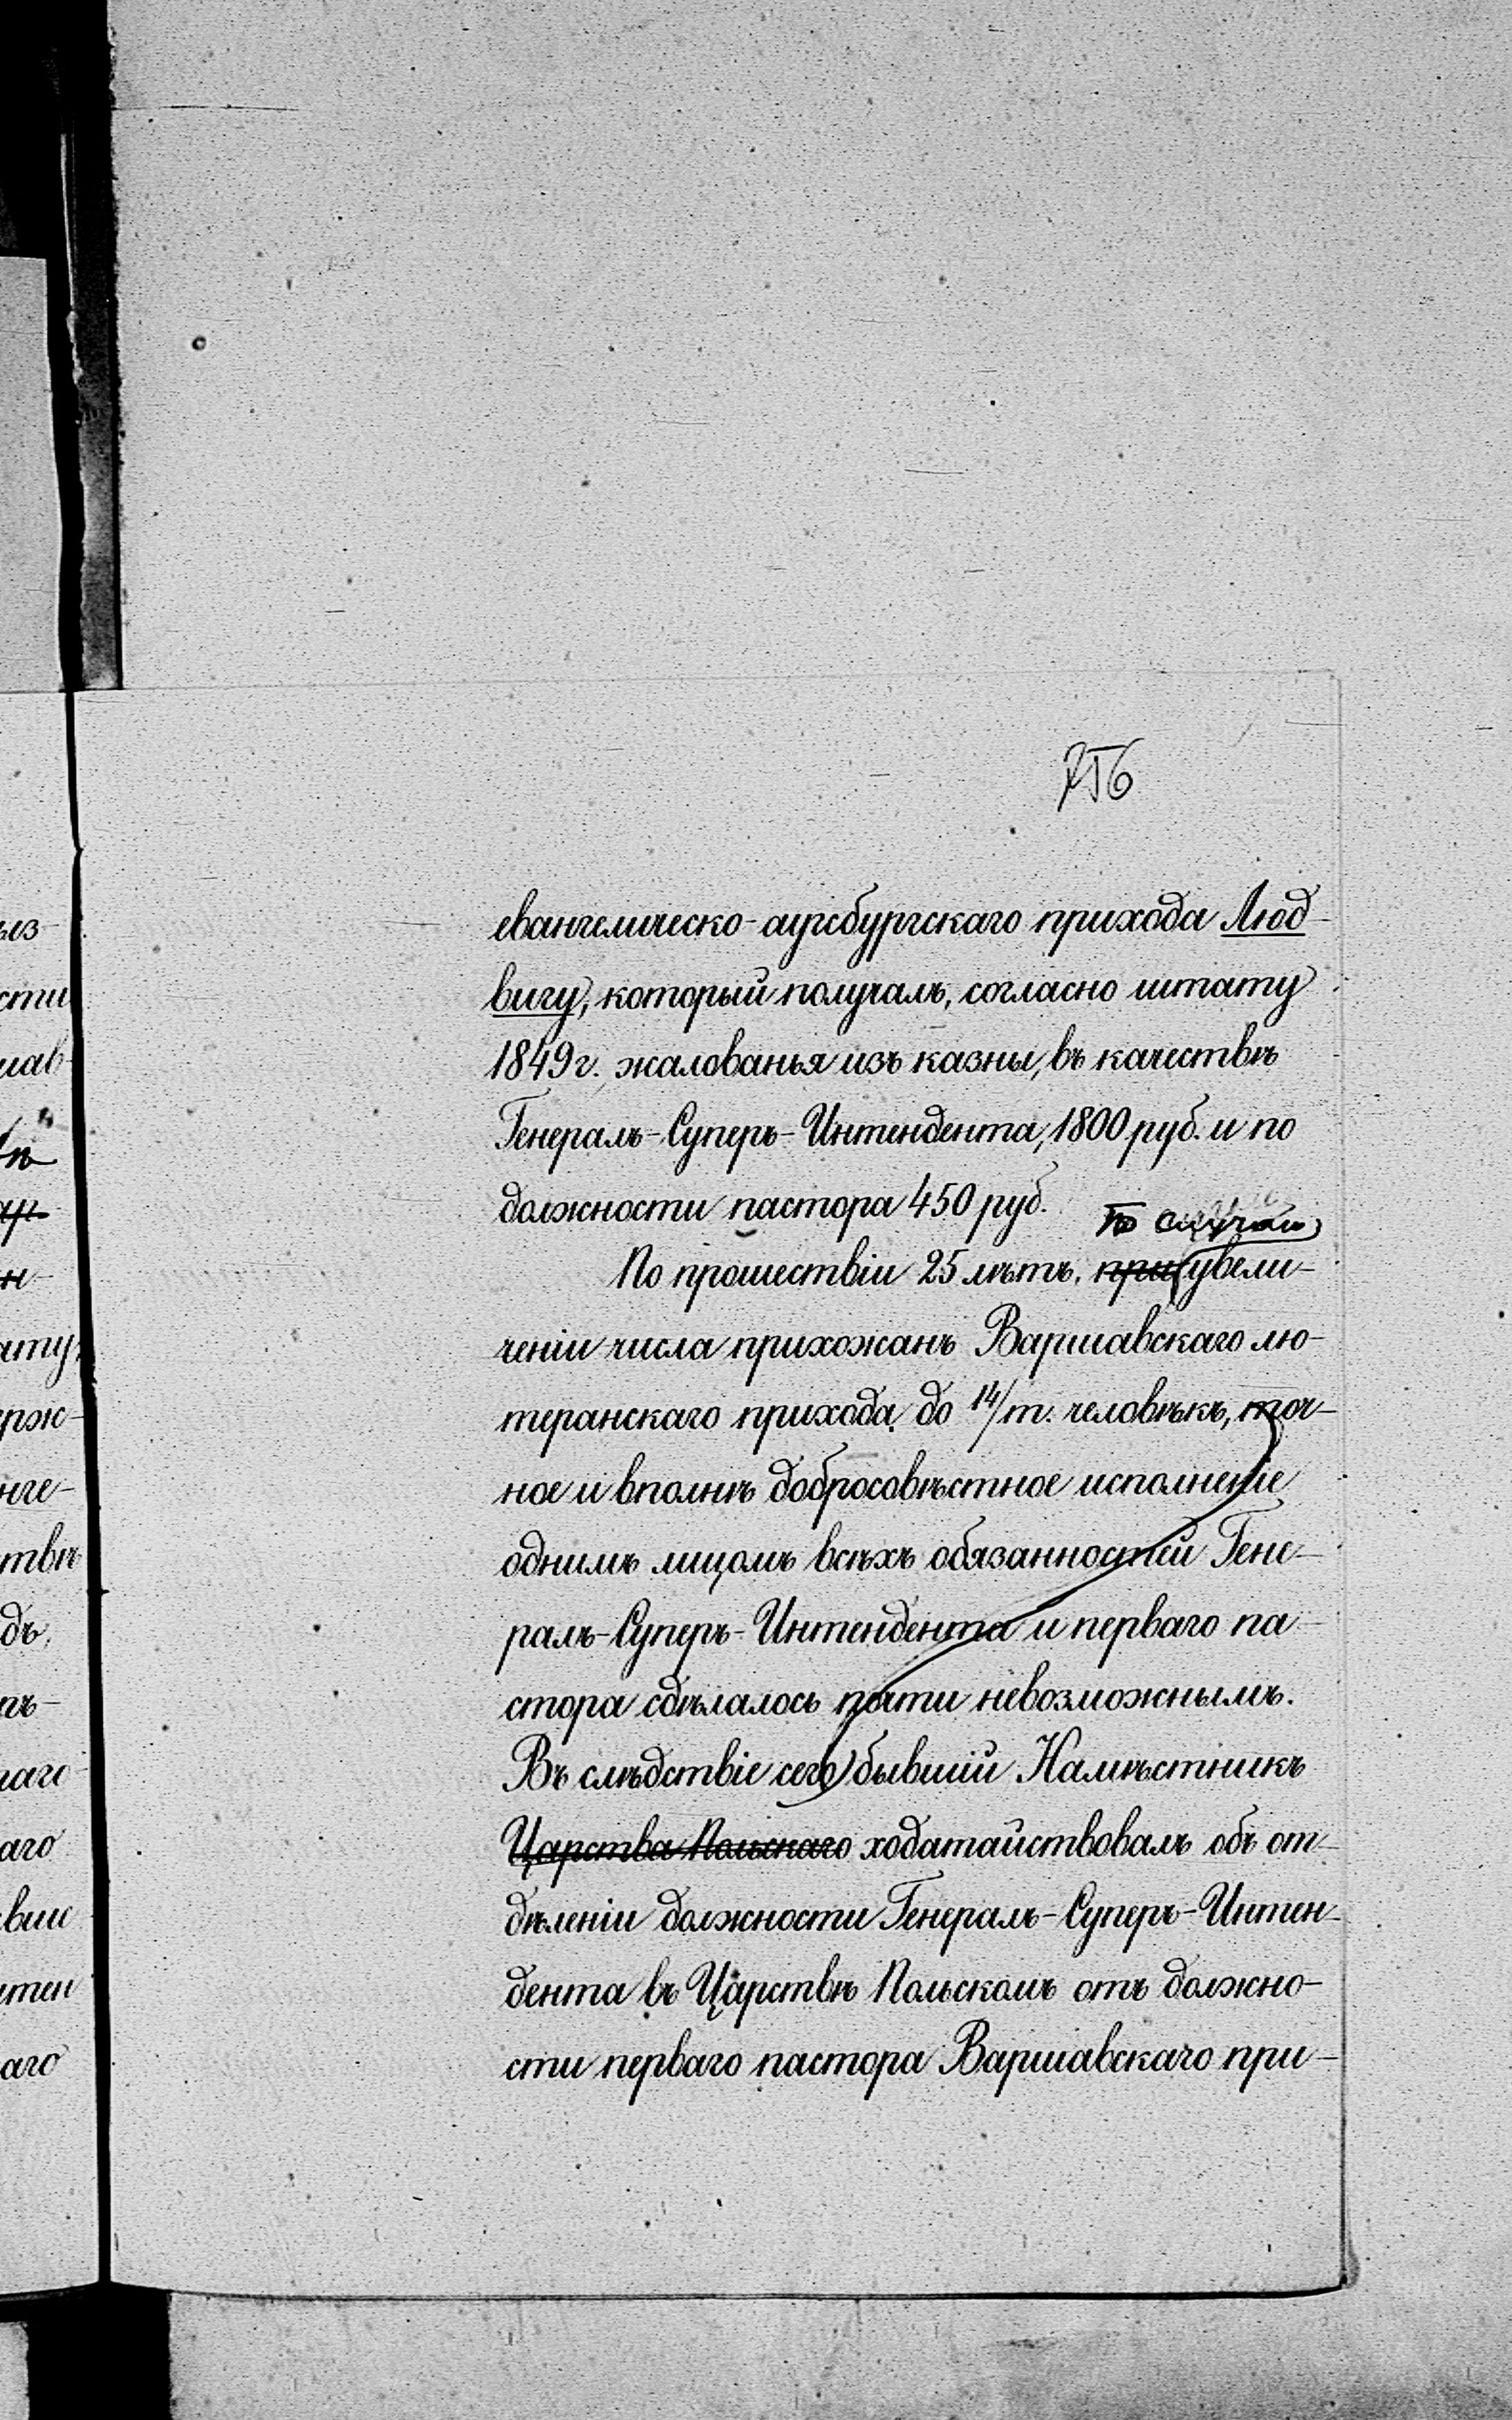 756
евангелическо-аугсбургскаго прихода Люд-
вигу, который получалъ, согласно штату
1849 г. жалованья изъ казны, въ качествѣ
Генералъ-Суперъ-Интендента, 1800 руб. и по
должности пастора 450 руб.
По случаю
По прошествіи 25 лѣтъ, при увели-
ченіи числа прихожанъ Варшавскаго лю-
теранскаго прихода до 14/т. человѣкъ, точ-
ное и вполнѣ добросовѣстное исполненіе
однимъ лицомъ всѣхъ обязанностей Гене-
ралъ-Суперъ-Интендента и перваго па-
стора сдѣлалось почти невозможнымъ.
Въ слѣдствіе сего бывшій Намѣстникъ
Царства Польскаго ходатайствовалъ объ от-
дѣленіи должности Генералъ-Суперъ-Интен-
дента въ Царствѣ Польскомъ отъ должно-
сти перваго пастора Варшавскаго при-